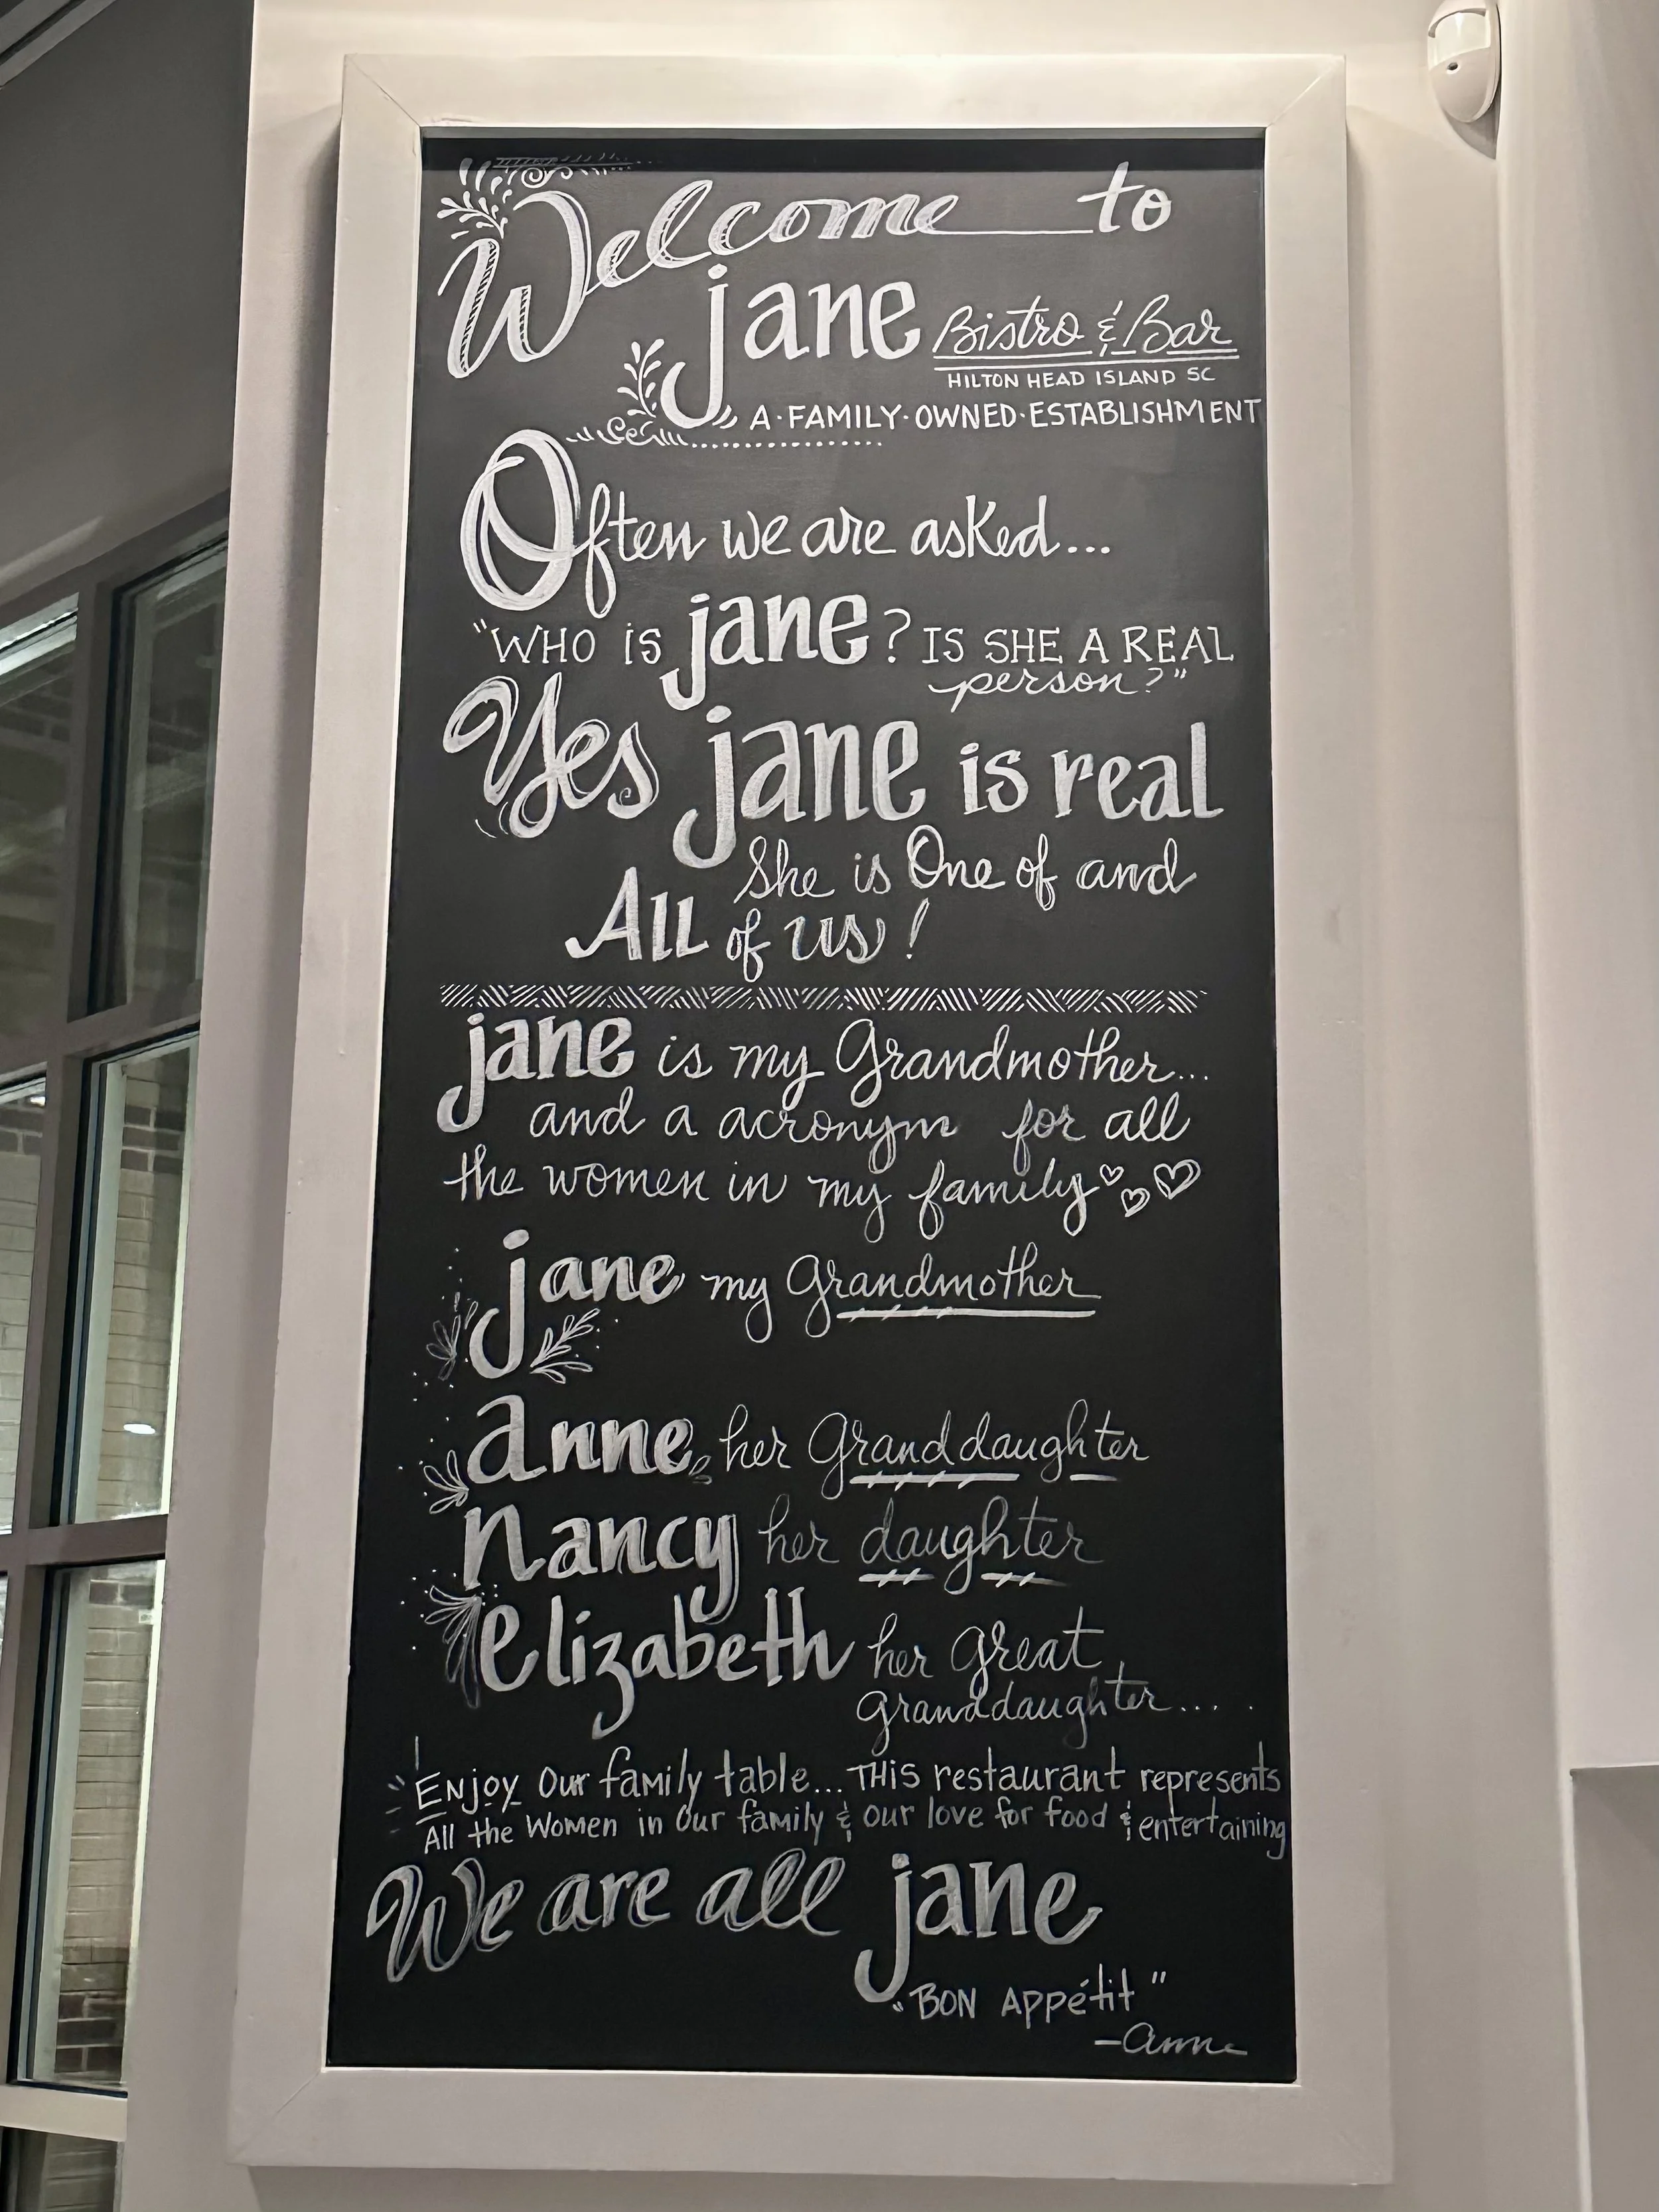 Welcome to
jane Bistro & Bar
HILTON HEAD ISLAND SC
A·FAMILY·OWNED·ESTABLISHMENT
Often we are asked...
"WHO IS jane? IS SHE A REAL
person?"
Yes jane is real
She is One of and
All of us!
jane is my Grandmother...
and a acronym for all
the women in my family
jane my Grandmother
anne her Granddaughter
nancy her daughter
elizabeth her Great
Granddaughter....
Enjoy Our family table... THis restaurant represents
All the Women in Our family & our love for food & entertaining
We are all jane
"BON APPétit"
-Anne